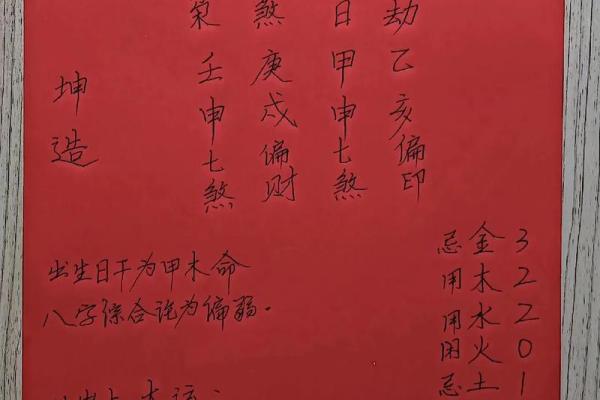 坤造
煞庚戌偏财
壬申七煞
日甲申七煞
劫乙亥偏印
出生日干为甲木命
八字综合论为偏弱。
忌金3
用木2
用水2
闲火0
忌土1